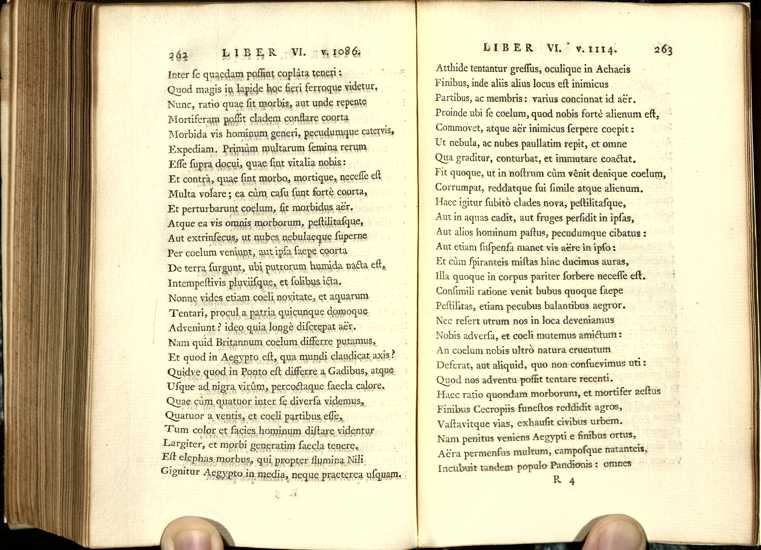 262 LIBER VI. v. 1086.
Inter ſe quaedam poſſint coplâta teneri:
Quod magis in lapide hoc fieri ferroque videtur.
Nunc, ratio quae ſit morbis, aut unde repente
Mortiferam poſſit cladem conflare coorta
Morbida vis hominum generi, pecudumque catervis,
Expediam. Primùm multarum ſemina rerum
Eſſe ſupra docui, quae ſint vitalia nobis:
Et contrà, quae ſint morbo, mortique, neceſſe eſt
Multa volare; ea cùm caſu ſunt fortè coorta,
Et perturbarunt coelum, fit morbidus aër.
Atque ea vis omnis morborum, peſtilitaſque,
Aut extrinſecus, ut nubes nebulaeque ſuperne
Per coelum veniunt, aut ipſa ſaepe coorta
De terra ſurgunt, ubi putrorum humida nacta eſt,
Intempeſtivis pluviiſque, et ſolibus icta.
Nonne vides etiam coeli novitate, et aquarum
Tentari, procul a patria quicunque domoque
Adveniunt? ideo quia longè diſcrepat aër.
Nam quid Britannum coelum differre putamus,
Et quod in Aegypto eſt, qua mundi claudicat axis?
Quidve quod in Ponto eſt differre a Gadibus, atque
Uſque ad nigra virûm, percoctaque ſaecla calore.
Quae cùm quatuor inter ſe diverſa videmus,
Quatuor a ventis, et coeli partibus eſſe,
Tum color et facies hominum diſtare videntur
Largiter, et morbi generatim ſaecla tenere.
Eſt elephas morbus, qui propter flumina Nili
Gignitur Aegypto in media, neque praeterea uſquam.
LIBER VI. v. 1114. 263
Atthide tentantur greſſus, oculique in Achaeis
Finibus, inde aliis alius locus eſt inimicus
Partibus, ac membris: varius concinnat id aër.
Proinde ubi ſe coelum, quod nobis fortè alienum eſt,
Commovet, atque aër inimicus ſerpere coepit:
Ut nebula, ac nubes paullatim repit, et omne
Qua graditur, conturbat, et immutare coactat.
Fit quoque, ut in noſtrum cùm vênit denique coelum,
Corrumpat, reddatque ſui ſimile atque alienum.
Haec igitur ſubitò clades nova, peſtilitaſque,
Aut in aquas cadit, aut fruges perſidit in ipſas,
Aut alios hominum paſtus, pecudumque cibatus:
Aut etiam ſuſpenſa manet vis aëre in ipſo:
Et cùm ſpiranteis miſtas hinc ducimus auras,
Illa quoque in corpus pariter ſorbere neceſſe eſt.
Conſimili ratione venit bubus quoque ſaepe
Peſtilitas, etiam pecubus balantibus aegror.
Nec refert utrum nos in loca deveniamus
Nobis adverſa, et coeli mutemus amictum:
An coelum nobis ultrò natura cruentum
Deferat, aut aliquid, quo non conſuevimus uti:
Quod nos adventu poſſit tentare recenti.
Haec ratio quondam morborum, et mortifer aeſtus
Finibus Cecropiis funeſtos reddidit agros,
Vaſtavitque vias, exhauſit civibus urbem.
Nam penitus veniens Aegypti e finibus ortus,
Aëra permenſus multum, campoſque natanteis,
Incubuit tandem populo Pandionis: omnes
R 4